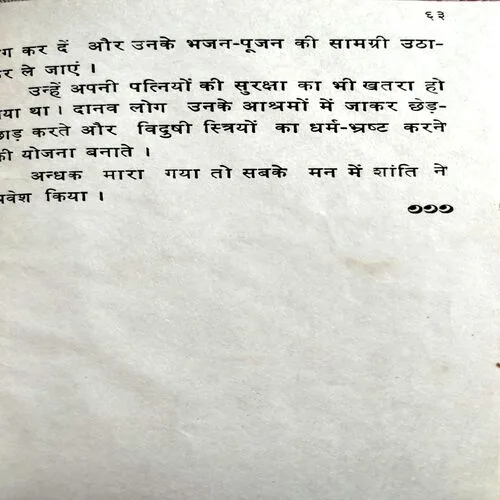 ६३
कर दें और उनके भजन-पूजन की सामग्री उठा-
ले जाएं ।
उन्हें अपनी पत्नियों की सुरक्षा का भी खतरा हो
था । दानव लोग उनके आश्रमों में जाकर छेड़-
छाड़ करते और विदुषी स्त्रियों का धर्म-भ्रष्ट करने
की योजना बनाते ।
अन्धक मारा गया तो सबके मन में शांति ने
प्रवेश किया ।